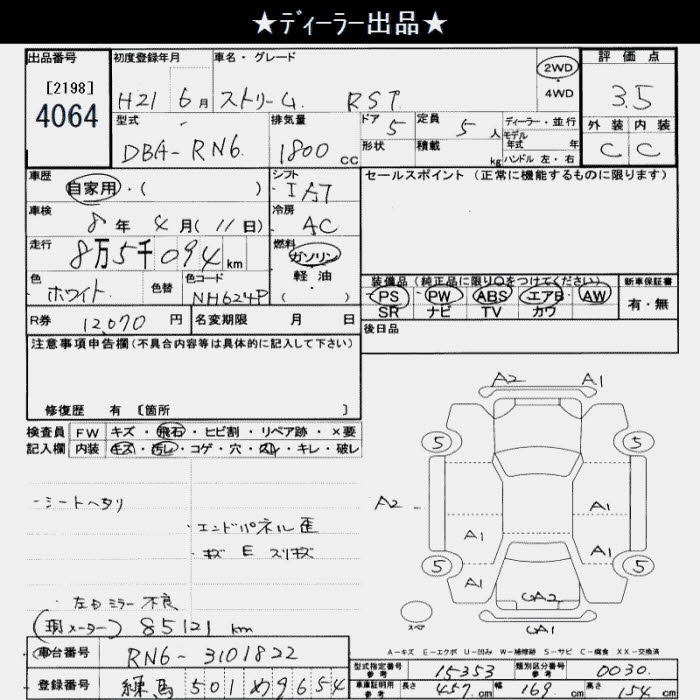 ★ディーラー出品★
出品番号 初度登録年月 車名・グレード 2WD 評価点
[2198] H21 6月 ストリーム RST ・ 4WD 3.5
4064 型式 排気量 ドア 5 定員 5人 ディーラー・並行 外装 内装
モデル年式 年
DBA-RN6 1800cc 形状 積載 kg ハンドル 左・右 C C
車歴 自家用・( ) シフト IAT セールスポイント(正常に機能するものに限ります)
車検 8年 4月(11日) 冷房 AC
走行 8万5千094km 燃料 ガソリン・軽油・( )
色 ホワイト 色替 色コード NH624P
装備品(純正品に限り○をつけてください) 新車保証書
PS PW ABS エアB AW 有・無
SR ナビ TV カワ
R券 12070円 名変期限 月 日 後日品
注意事項申告欄(不具合内容等は具体的に記入して下さい)
修復歴 有 [箇所 ]
検査員 FW キズ・飛石・ヒビ割・リペア跡・×要
記入欄 内装 キズ・汚レ・コゲ・穴・スレ・キレ・破レ
A2 A1
5 5
・シートヘタリ
A2 A1
・エンドパネル歪
A1 A1
キズ E スリキズ
5 5
A1 A1
・左右ミラー不良
CA2
スペア
CA1
(現メーター) 85121km
A-キズ E-エクボ U-凹み W-補修跡 S-サビ C-腐食 XX-交換済
車台番号 RN6-3101822
型式指定番号 参考 15353 類別区分番号 参考 0030
登録番号 練馬 501 め9654
車庫証明用 参考 長さ 457cm 幅 169cm 高さ 154cm